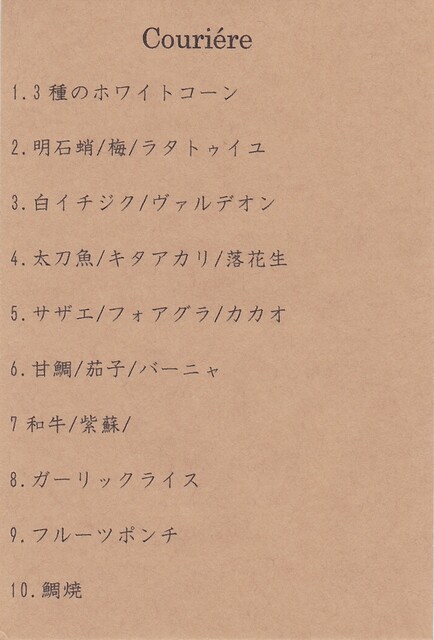 Couriére
1.3種のホワイトコーン
2.明石蛸/梅/ラタトゥイユ
3.白イチジク/ヴァルデオン
4.太刀魚/キタアカリ/落花生
5.サザエ/フォアグラ/カカオ
6.甘鯛/茄子/バーニャ
7 和牛/紫蘇/
8.ガーリックライス
9.フルーツポンチ
10.鯛焼